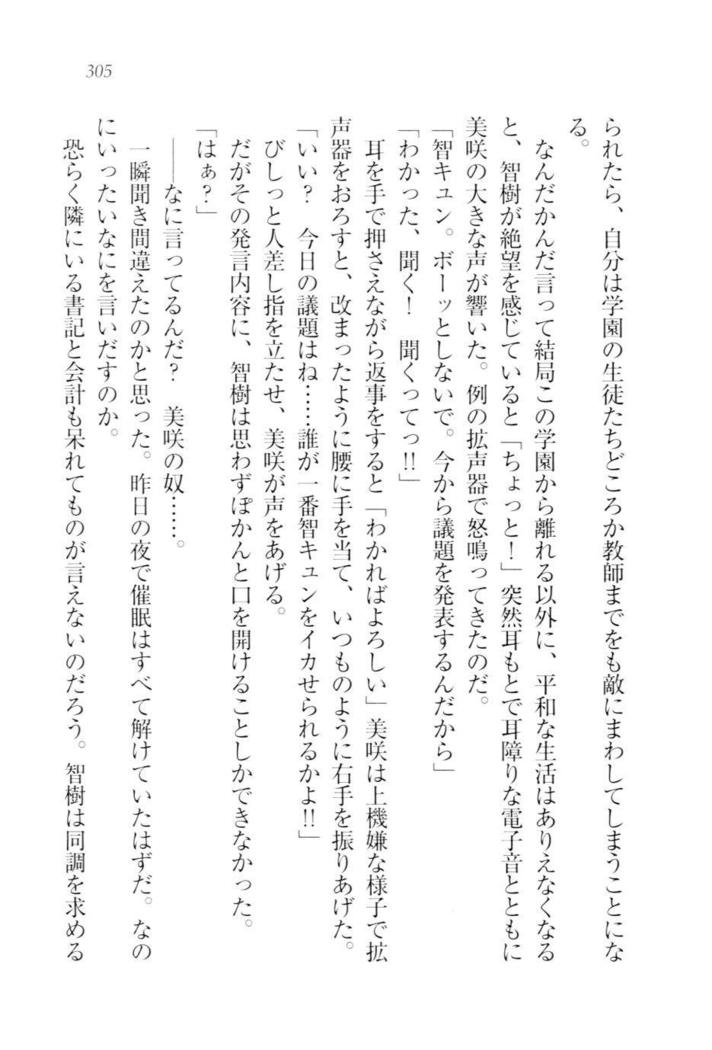 305
られたら、自分は学園の生徒たちどころか教師までをも敵にまわしてしまうことにな
る。
なんだかんだ言って結局この学園から離れる以外に、平和な生活はありえなくなる
と、智樹が絶望を感じていると「ちょっと！」突然耳もとで耳障りな電子音とともに
美咲の大きな声が響いた。例の拡声器で怒鳴ってきたのだ。
「智キュン。ボーッとしないで。今から議題を発表するんだから」
「わかった、聞く！　聞くってっ!!」
耳を手で押さえながら返事をすると「わかればよろしい」美咲は上機嫌な様子で拡
声器をおろすと、改まったように腰に手を当て、いつものように右手を振りあげた。
「いい？　今日の議題はね……誰が一番智キュンをイカせられるかよ!!」
びしっと人差し指を立たせ、美咲が声をあげる。
だがその発言内容に、智樹は思わずぽかんと口を開けることしかできなかった。
「はぁ？」
――なに言ってるんだ？　美咲の奴……。
一瞬聞き間違えたのかと思った。昨日の夜で催眠はすべて解けていたはずだ。なの
にいったいなにを言いだすのか。
恐らく隣にいる書記と会計も呆れてものが言えないのだろう。智樹は同調を求める